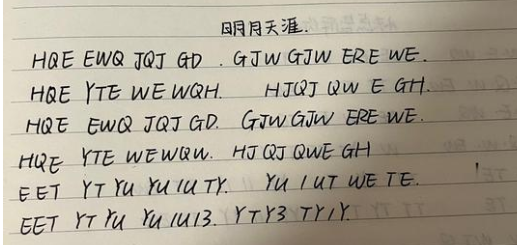 明月天涯.
HQE EWQ JQJ GD . GJW GJW ERE WE.
HQE YTE WE WQH. HJQJ QW E GH.
HQE EWQ JQJ GD. GJW GJW ERE WE.
HQE YTE WEWQW. HJ QJ QWE GH
EET YT YU YU IU TY. YU I UT WE TE.
EET YT YU YU IUI3. YTY3 TYIY.